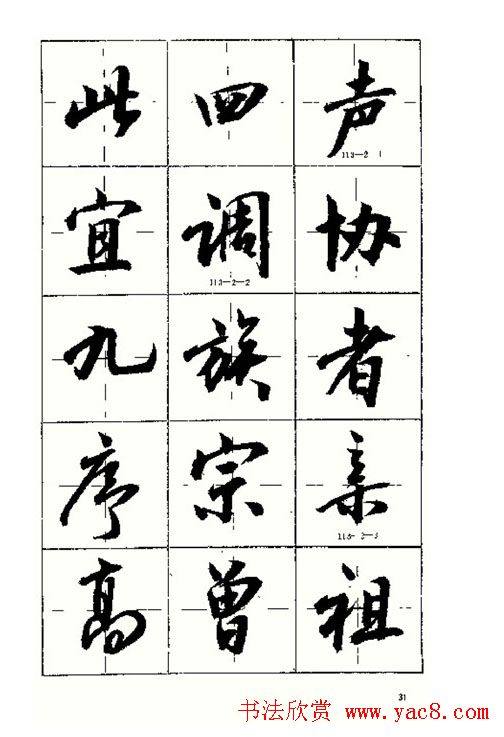 此四声
113—2 1
宜调协
113—2—2
九族者
序宗亲
高曾祖
31
书法欣赏 www.yac8.com